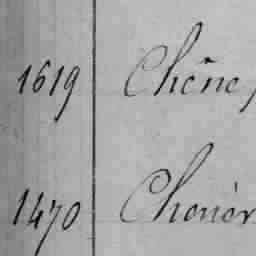 1619 Chêne,
1470 Chenèr